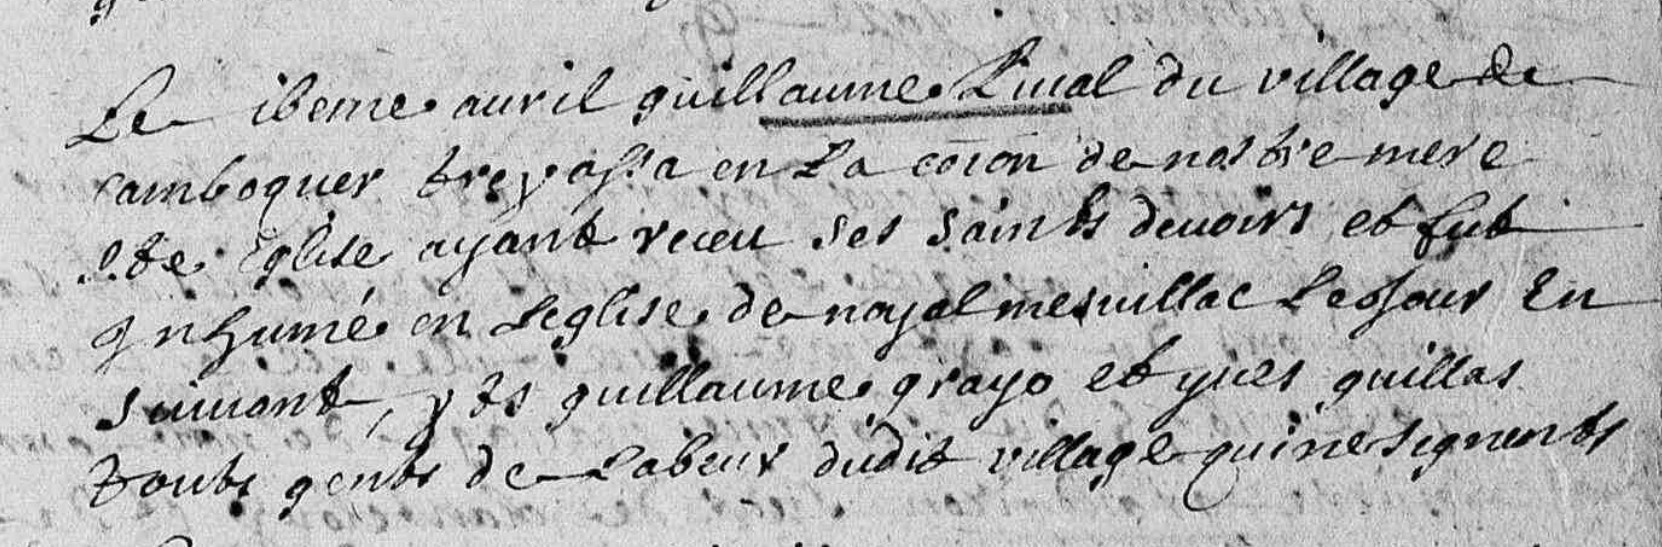 Le 16eme auril guillaume Liual du village de
camboquer trepassa en La cõion de nostre mere
s.te Eglise ayant receu ses saints deuoirs et fut
Inhumé en Leglise de noyal meuillac Le Jour En
suiuant, pñts guillaume grayo et yues guillas
touts gents de Labeur dudit village qui ne signents